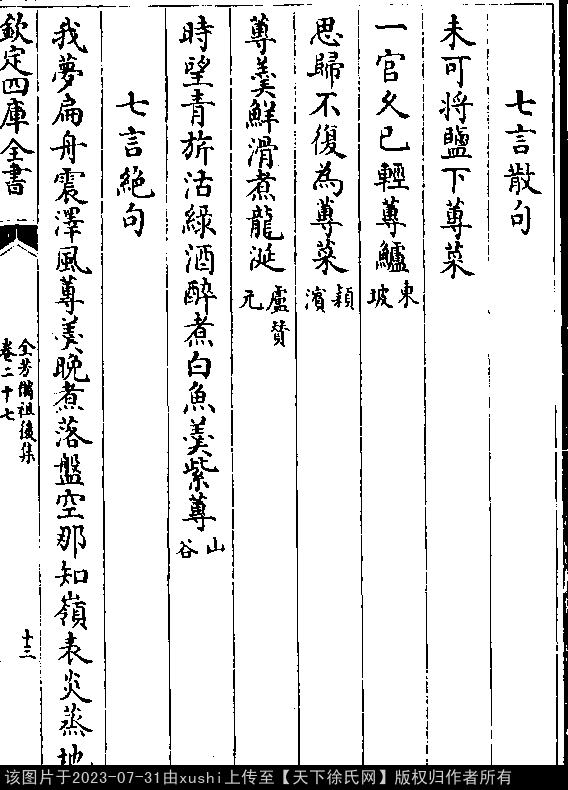 七言散句
未可將鹽下蓴菜
一官久已輕蓴鱸東坡
思歸不復為蓴菜潁濱
蓴羹鮮滑煮龍涎盧贊元
時望青旂沽綠酒醉煮白魚羹紫蓴山谷
七言絕句
我夢扁舟震澤風蓴羹晚煮落盤空那知嶺表炎蒸地
欽定四庫全書
全芳備祖後集
卷二十七
十三
该图片于2023-07-31由xushi上传至【天下徐氏网】版权归作者所有